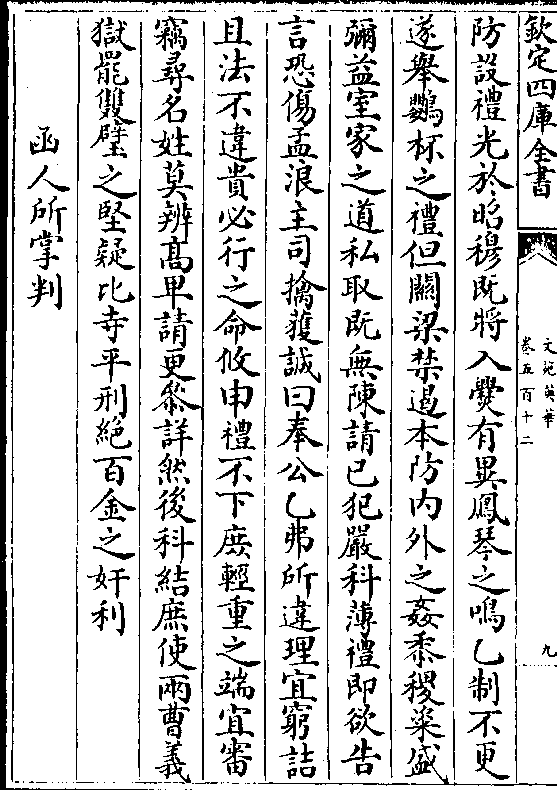 欽定四庫全書
文苑英華
卷五百十二
九
防設禮光於昭穆既將入爨有異鳳琴之鳴乙制不更
遂舉鸚杯之禮但關梁禁遏本防内外之姦黍稷粢盛
彌益室家之道私取既無陳請已犯嚴科薄禮即欲告
言恐傷孟浪主司擒獲誠曰奉公乙弗所違理宜窮詰
且法不違貴必行之命攸申禮不下庶輕重之端宜審
竊尋名姓莫辨髙卑請更叅詳然後科結庶使兩曹義
獄罷雙璧之堅疑比寺平刑絶百金之奸利
函人所掌判